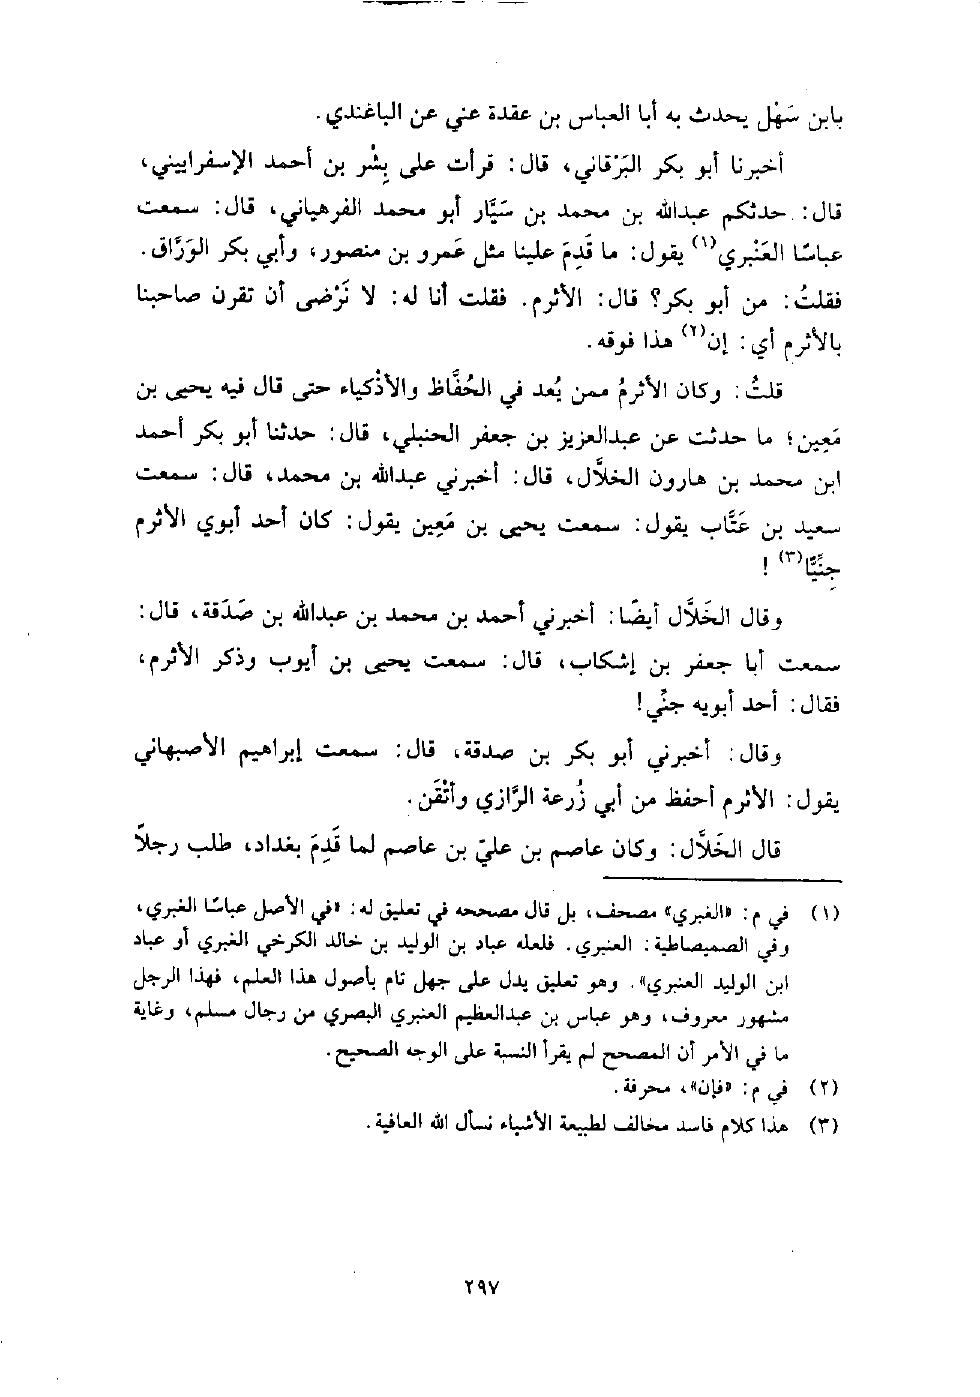 بابن سَهْل يحدث به أبا العباس بن عقدة عني عن الباغندي.
أخبرنا أبو بكر البَرْقاني، قال: قرأت على بِشْر بن أحمد الإسفراييني،
قال: حدثكم عبدالله بن محمد بن سَيَّار أبو محمد الفرهياني، قال: سمعت
عباسًا العَنْبري(١) يقول: ما قَدِمَ علينا مثل عَمرو بن منصور، وأبي بكر الوَرَّاق.
فقلتُ: من أبو بكر؟ قال: الأثرم. فقلت أنا له: لا نَرْضى أن تقرن صاحبنا
بالأثرم أي: إن(٢) هذا فوقه.
قلتُ: وكان الأثرمُ ممن يُعد في الحُفَّاظ والأذْكياء حتى قال فيه يحيى بن
مَعِين؛ ما حدثت عن عبدالعزيز بن جعفر الحنبلي، قال: حدثنا أبو بكر أحمد
ابن محمد بن هارون الخلَّال، قال: أخبرني عبدالله بن محمد، قال: سمعت
سعيد بن عَتَّاب يقول: سمعت يحيى بن مَعِين يقول: كان أحد أبوي الأثرم
جِنِّيًّا(٣)!
وقال الخَلَّال أيضًا: أخبرني أحمد بن محمد بن عبدالله بن صَدَقة، قال:
سمعت أبا جعفر بن إشكاب، قال: سمعت يحيى بن أيوب وذكر الأثرم،
فقال: أحد أبويه جنِّي!
وقال: أخبرني أبو بكر بن صدقة، قال: سمعت إبراهيم الأصبهاني
يقول: الأثرم أحفظ من أبي زُرعة الرَّازي وأتْقَن.
قال الخَلَّال: وكان عاصم بن عليّ بن عاصم لما قَدِمَ بغداد، طلب رجلًا
(١) في م: «الغبري» مصحف، بل قال مصححه في تعليق له: «في الأصل عباسًا الغبري،
وفي الصميصاطية: العنبري. فلعله عباد بن الوليد بن خالد الكرخي الغبري أو عباد
ابن الوليد العنبري». وهو تعليق يدل على جهل تام بأصول هذا العلم، فهذا الرجل
مشهور معروف، وهو عباس بن عبدالعظيم العنبري البصري من رجال مسلم، وغاية
ما في الأمر أن المصحح لم يقرأ النسبة على الوجه الصحيح.
(٢) في م: «فإن»، محرفة.
(٣) هذا كلام فاسد مخالف لطبيعة الأشياء نسأل الله العافية.
٢٩٧